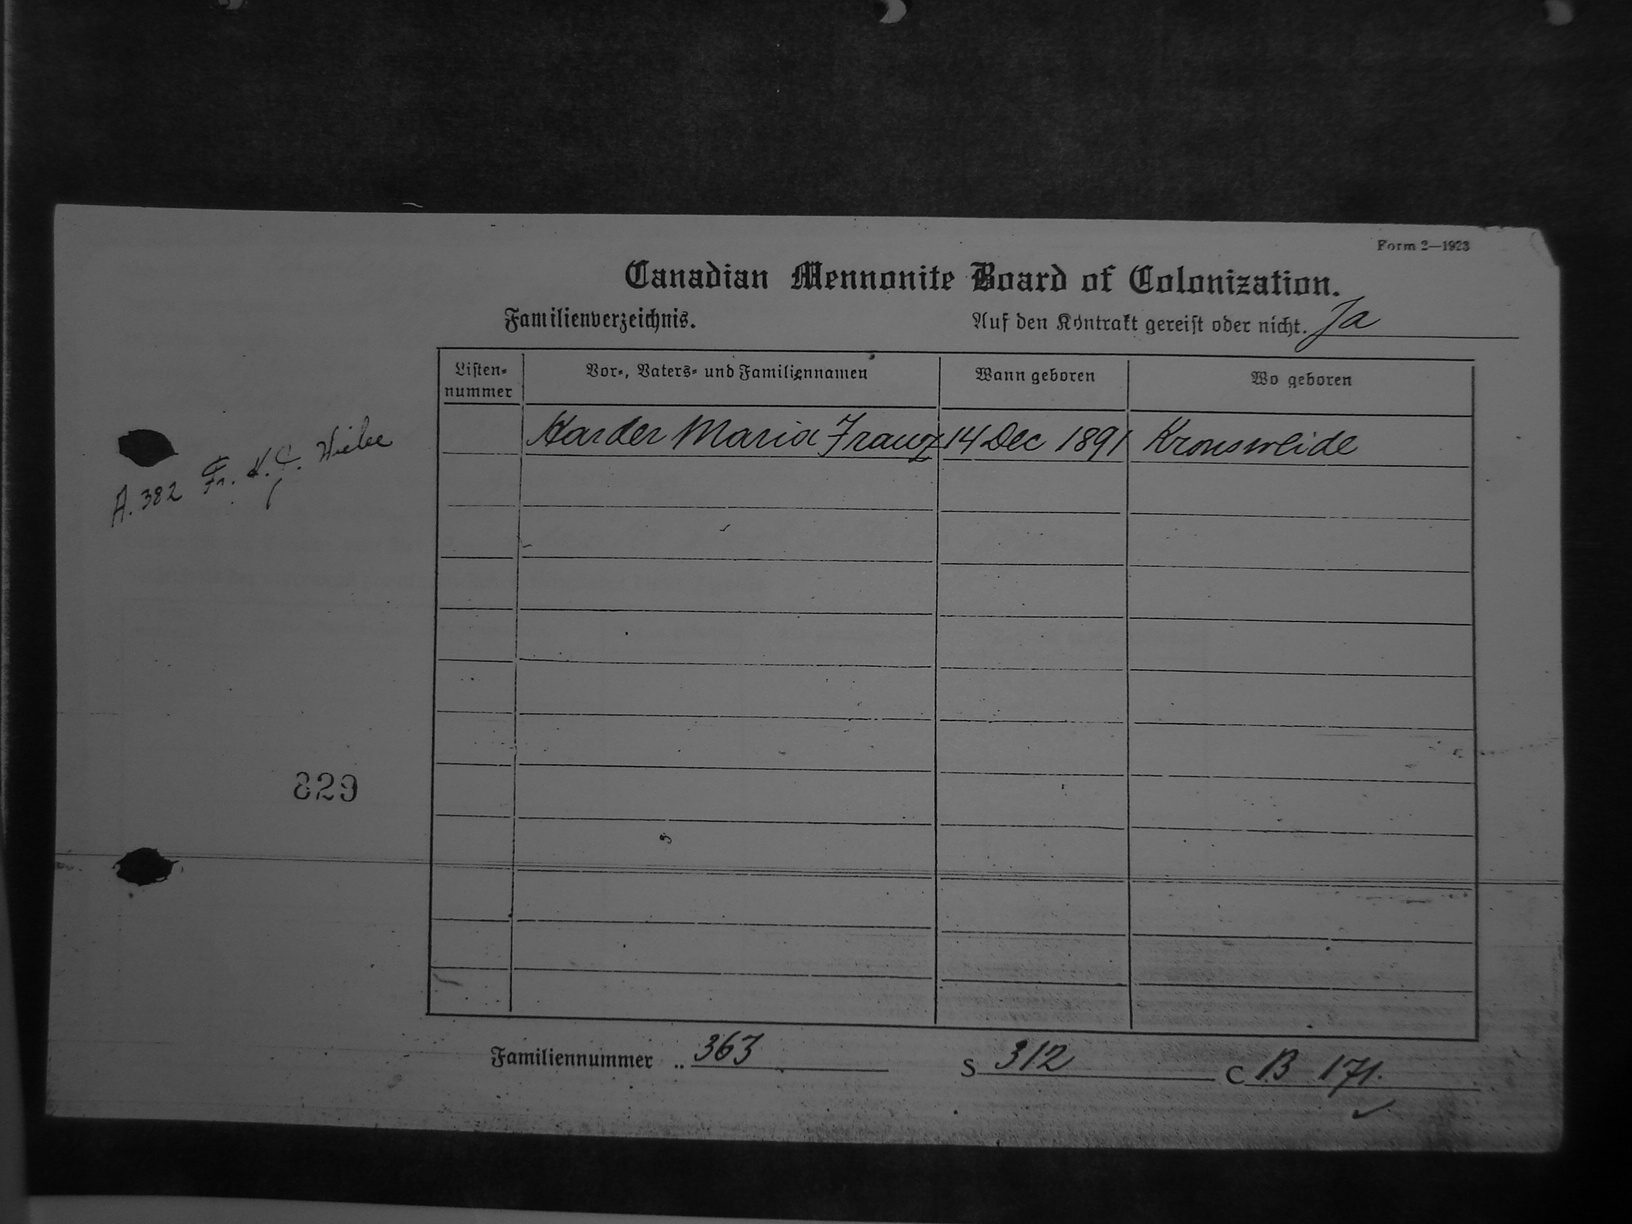 Form 2—1923
Canadian Mennonite Board of Colonization.
Familienverzeichnis. Auf den Kontrakt gereist oder nicht. Ja
Listen-nummer Vor-, Vaters- und Familiennamen Wann geboren Wo geboren
Harder Maria Franz 14 Dec 1891 Kronsweide
A. 382 Fr. K. C. Wiebe
829
Familiennummer .. 363 S 312 C B 171.